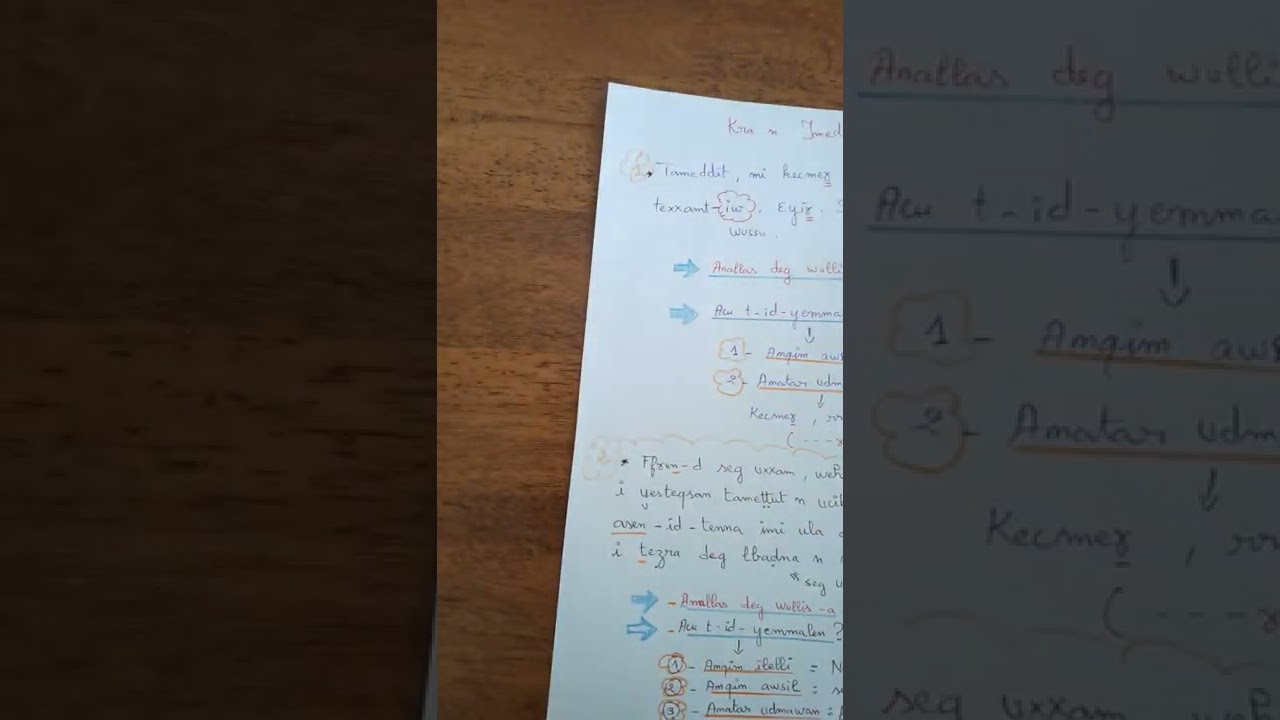 Kra n Imed
1 * Tameddit, mi kecmeɣ
texxamt-iw, Ɛyiɣ. S
wussu.
Anallas deg wulli
Acu t-id-yemma
1- Amqim aws
2- Amatar udm
Kecmeɣ, rr
( ---ɣ
2 * Ffɣen-d seg uxxam, weḥ
i yesteqsan tameṭṭut n ucib
asen-id-tenna imi ula d
i teẓra deg lbaḍna n
"seg u
- Anallas deg wullis-a
- Acu t-id-yemmalen ?
1- Amqim ilelli = N
2- Amqim awsil : s
3- Amatar udmawan :
Anallas deg wullis
Acu t-id-yemma
1- Amqim aws
2- Amatar udm
Kecmeɣ, rr
( ---ɣ
seg uxxam, weḥ